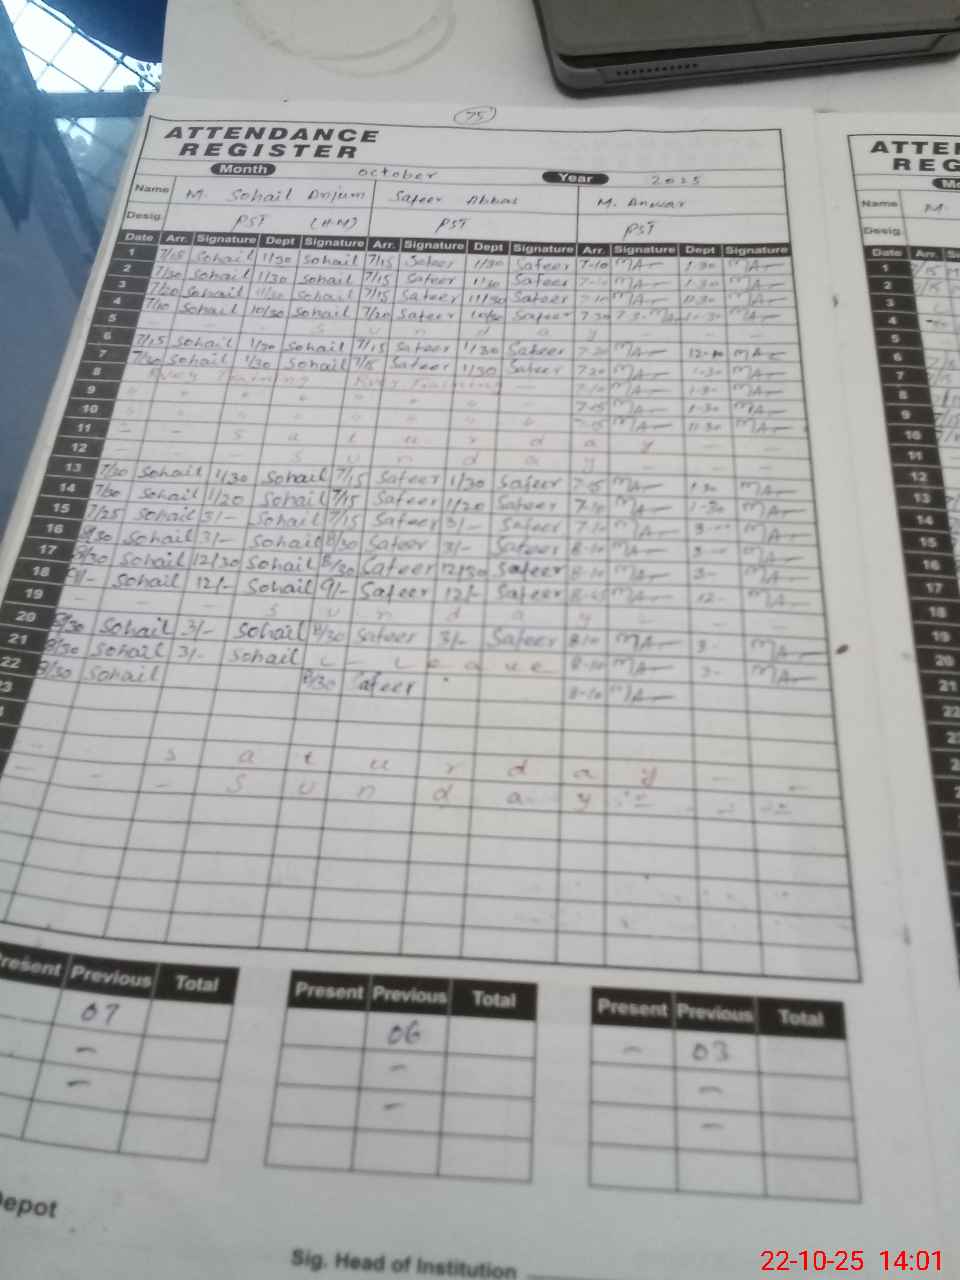 75
ATTENDANCE
REGISTER
Month October Year 2025
Name M. Sohail Anjum Safeer Abbas M. Anwar
Desig. PST (H.M) PST PST
Date Arr. Signature Dept Signature Arr. Signature Dept Signature Arr. Signature Dept Signature
1 7/15 Sohail 1/30 Sohail 7/15 Safeer 1/30 Safeer 7-10 MA 1-30 MA
2 7/30 Sohail 1/30 Sohail 7/15 Safeer 1/30 Safeer 7-10 MA 1-30 MA
3 7/20 Sohail Sohail 7/15 Safeer 11/30 Safeer 7-10 MA 11-30 MA
4 Sohail 10/30 Sohail 7/20 Safeer 10/30 Safeer 7-30 MA
5 S u n d a y
6 7/15 Sohail 1/30 Sohail 7/15 Safeer 1/30 Safeer MA MA
7 7/30 Sohail 1/30 Sohail 7/15 Safeer 1/30 Safeer 7-30 MA 1-30 MA
8 Training Training MA 1-30 MA
9 " " " " " " " 7-15 MA 1-30 MA
10 " " " " " " " 7-15 MA 11-30 MA
11 - - S a t u r d a y -
12 - - S u n d a y - -
13 7/30 Sohail 1/30 Sohail 7/15 Safeer 1/30 Safeer 7-15 MA 1-30 MA
14 7/30 Sohail 1/20 Sohail 7/15 Safeer 1/20 Safeer 7-10 MA 1-30 MA
15 7/25 Sohail 3/- Sohail 7/15 Safeer 3/- Safeer 7-10 MA MA
16 8/30 Sohail 3/- Sohail 8/30 Safeer 3/- Safeer 8-10 MA MA
17 8/30 Sohail 12/30 Sohail 8/30 Safeer 12/30 Safeer 8-10 MA 3- MA
18 Sohail 12/- Sohail 9/- Safeer 12/- Safeer MA 12- MA
19 - - - S u n d a y - - -
20 8/30 Sohail 3/- Sohail 8/30 Safeer 3/- Safeer 8-10 MA 3- MA
21 8/30 Sohail 3/- Sohail L e a v e 8-10 MA 3- MA
22 8/30 Sohail 8/30 Safeer 8-10 MA
3
S a t u r d a y - -
- - - S u n d a y
Present Previous Total
07
-
-
Present Previous Total
06
-
-
Present Previous Total
- 03
-
-
Depot
Sig. Head of Institution
ATTEN
REG
Mo
Name M.
Desig.
Date Arr.
1 7/15
2 7/15
3
4
5
6
7
8
9
10
11
12
13
14
15
16
17
18
19
20
21
22
22-10-25 14:01